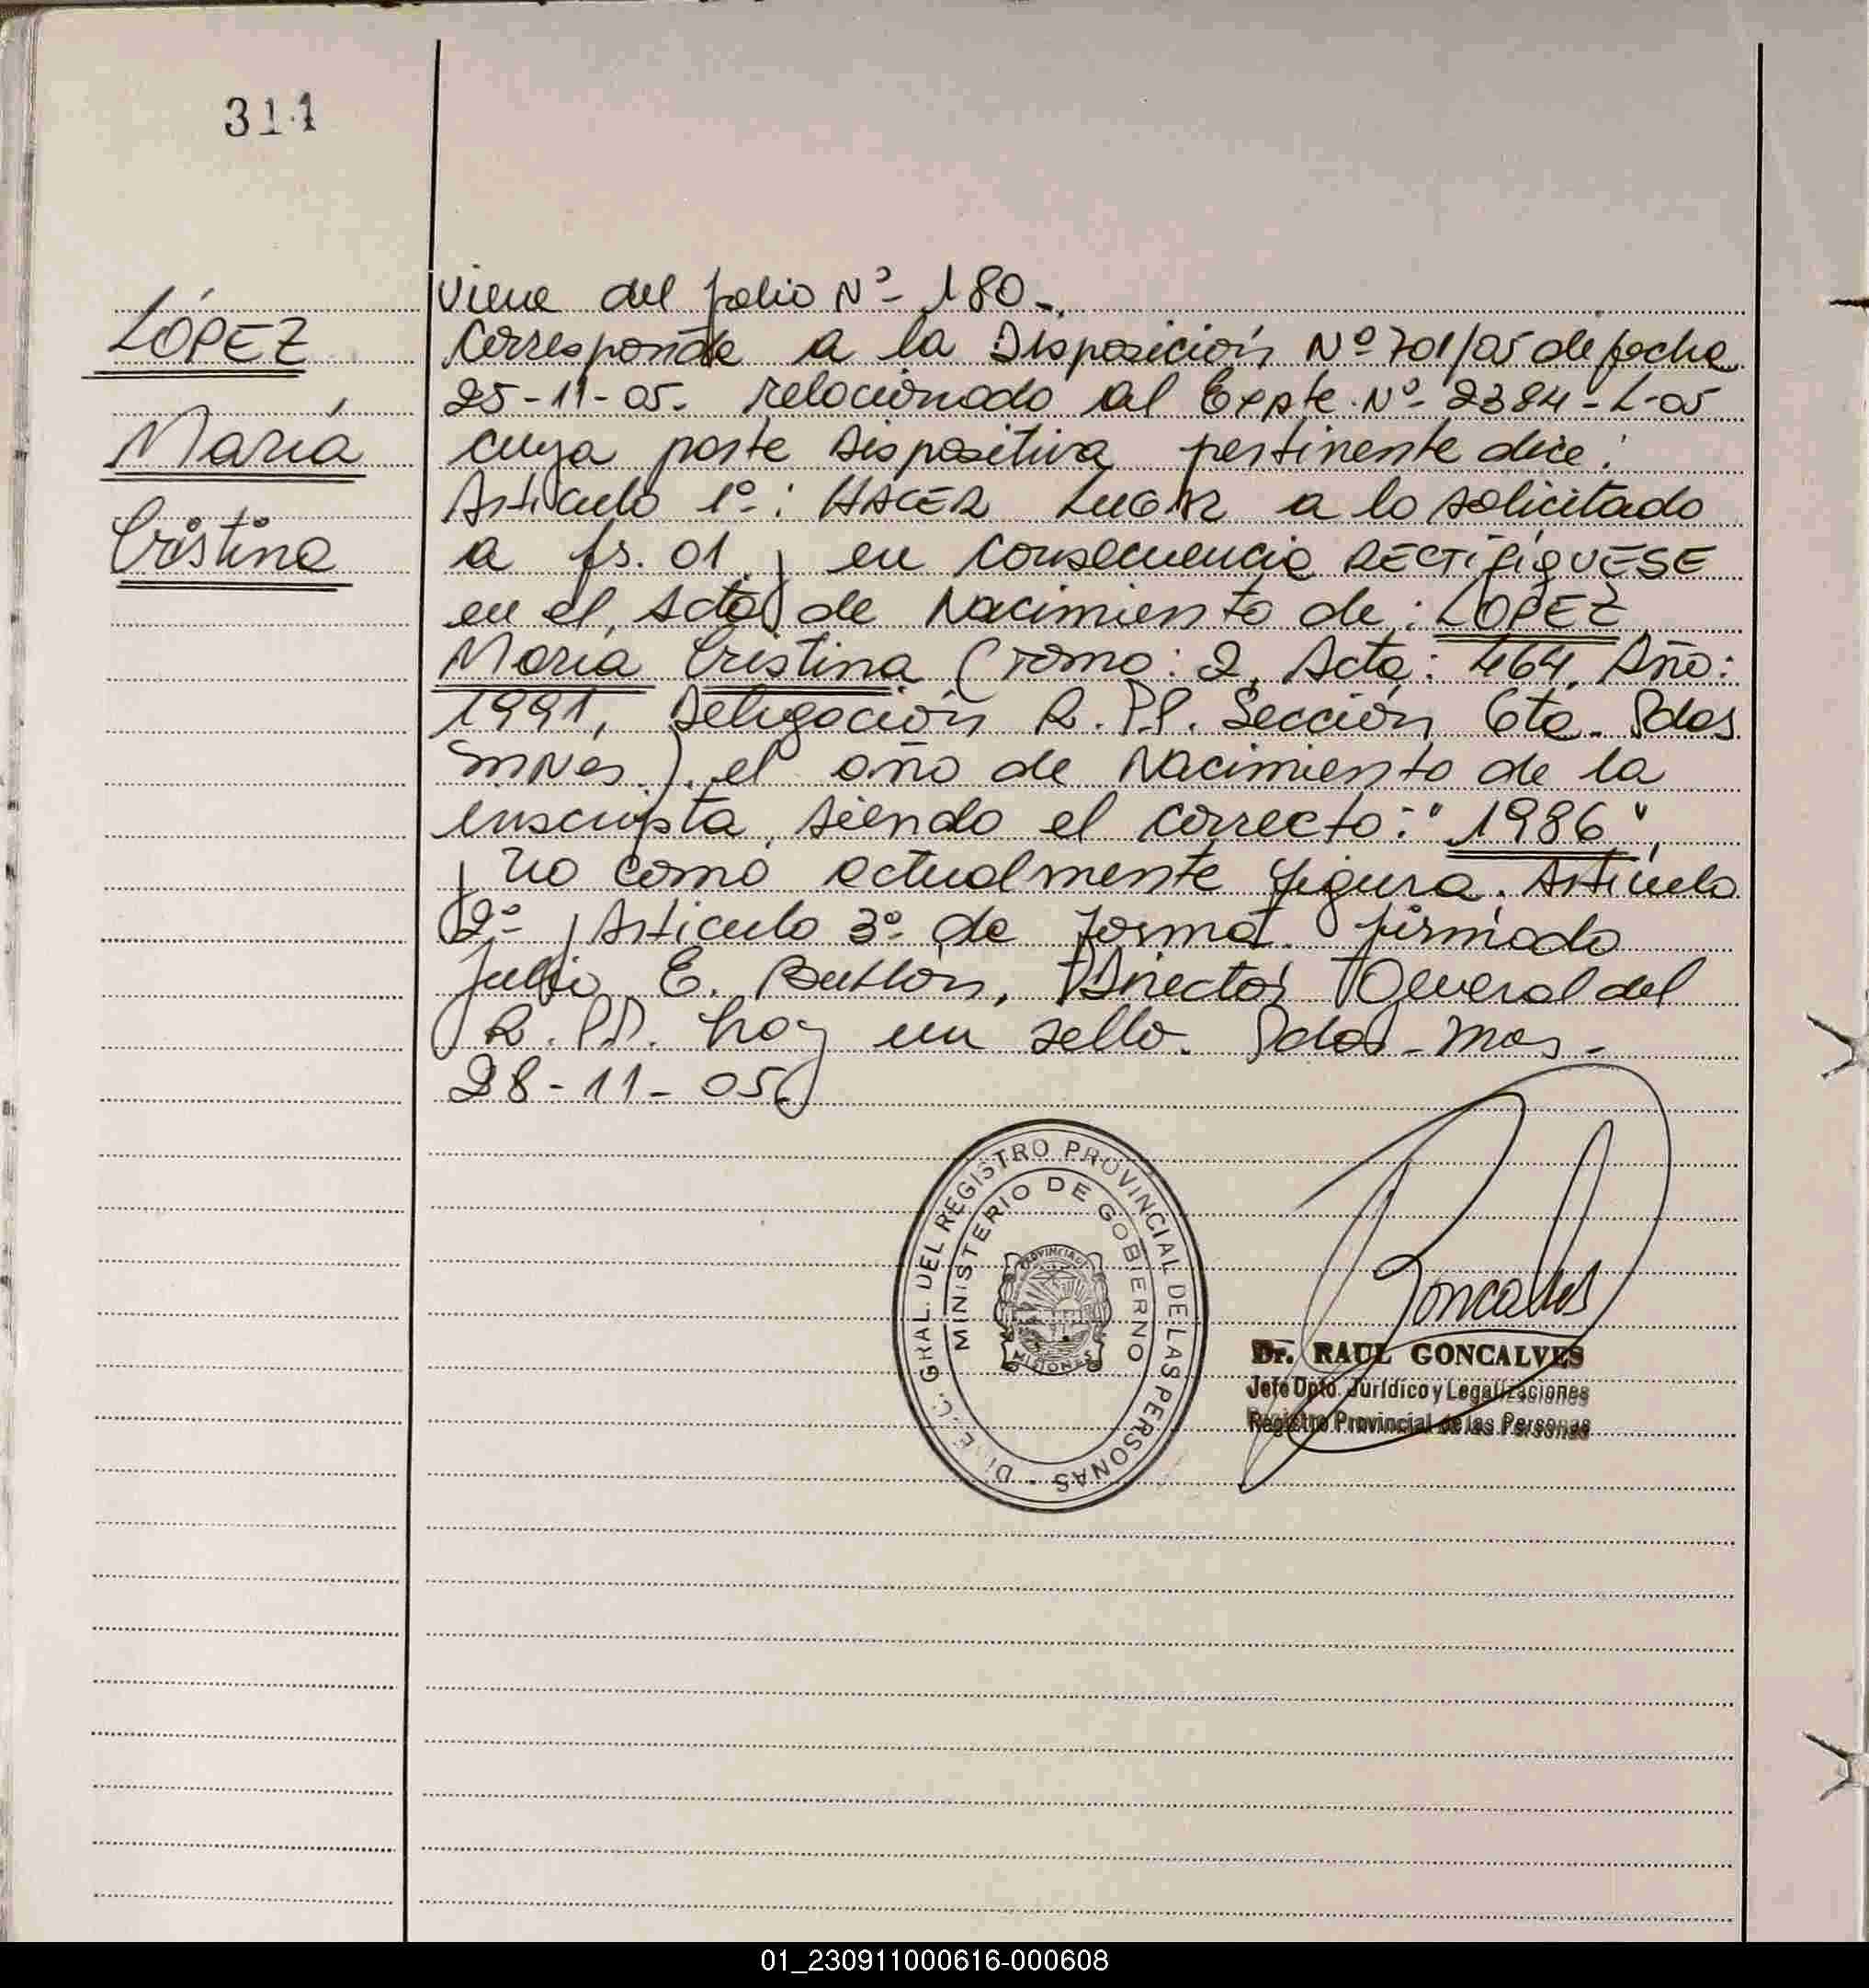 311
LÓPEZ
María
Cristina
Viene del folio Nº 180-.
Corresponde a la Disposición Nº 701/05 de fecha
25-11-05. relacionado al Expte. Nº 2384-L-05
cuya parte dispositiva pertinente dice:
Artículo 1º: HACER LUGAR a lo solicitado
a fs. 01 y en consecuencia RECTIFÍQUESE
en el Acta de Nacimiento de: LOPEZ
María Cristina (Tomo: 2, Acta: 464, Año:
1991, Delegación R.P.P. Sección 6ta. Pdas
Mnes). el año de Nacimiento de la
inscripta, siendo el correcto: "1986",
y no como actualmente figura. Artículo
2º y Artículo 3º de forma. firmado
Julio E. Director General del
R.P.P. hay un sello. Pdas-Mnes-
28-11-05
DIREC. GRAL. DEL REGISTRO PROVINCIAL DE LAS PERSONAS
MINISTERIO DE GOBIERNO
PROVINCIA
MISIONES
Goncalves
Dr. RAUL GONCALVES
Jefe Dpto. Jurídico y Legalizaciones
Registro Provincial de las Personas
01_230911000616-000608